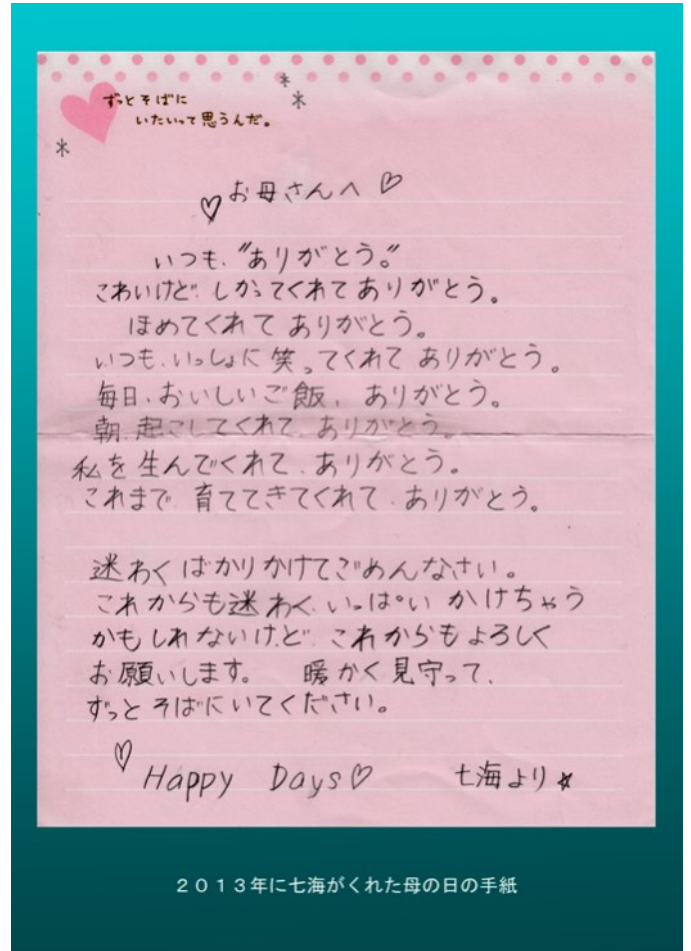 ずっとそばに
いたいって思うんだ。
♡お母さんへ♡
いつも、"ありがとう。"
こわいけど、しかってくれてありがとう。
ほめてくれてありがとう。
いつも、いっしょに笑ってくれてありがとう。
毎日、おいしいご飯、ありがとう。
朝、起こしてくれて、ありがとう。
私を生んでくれて、ありがとう。
これまで、育ててきてくれて、ありがとう。
迷わくばかりかけてごめんなさい。
これからも迷わく、いっぱいかけちゃう
かもしれないけど、これからもよろしく
お願いします。 暖かく見守って、
ずっとそばにいてください。
♡Happy Days♡ 七海より☆
2013年に七海がくれた母の日の手紙